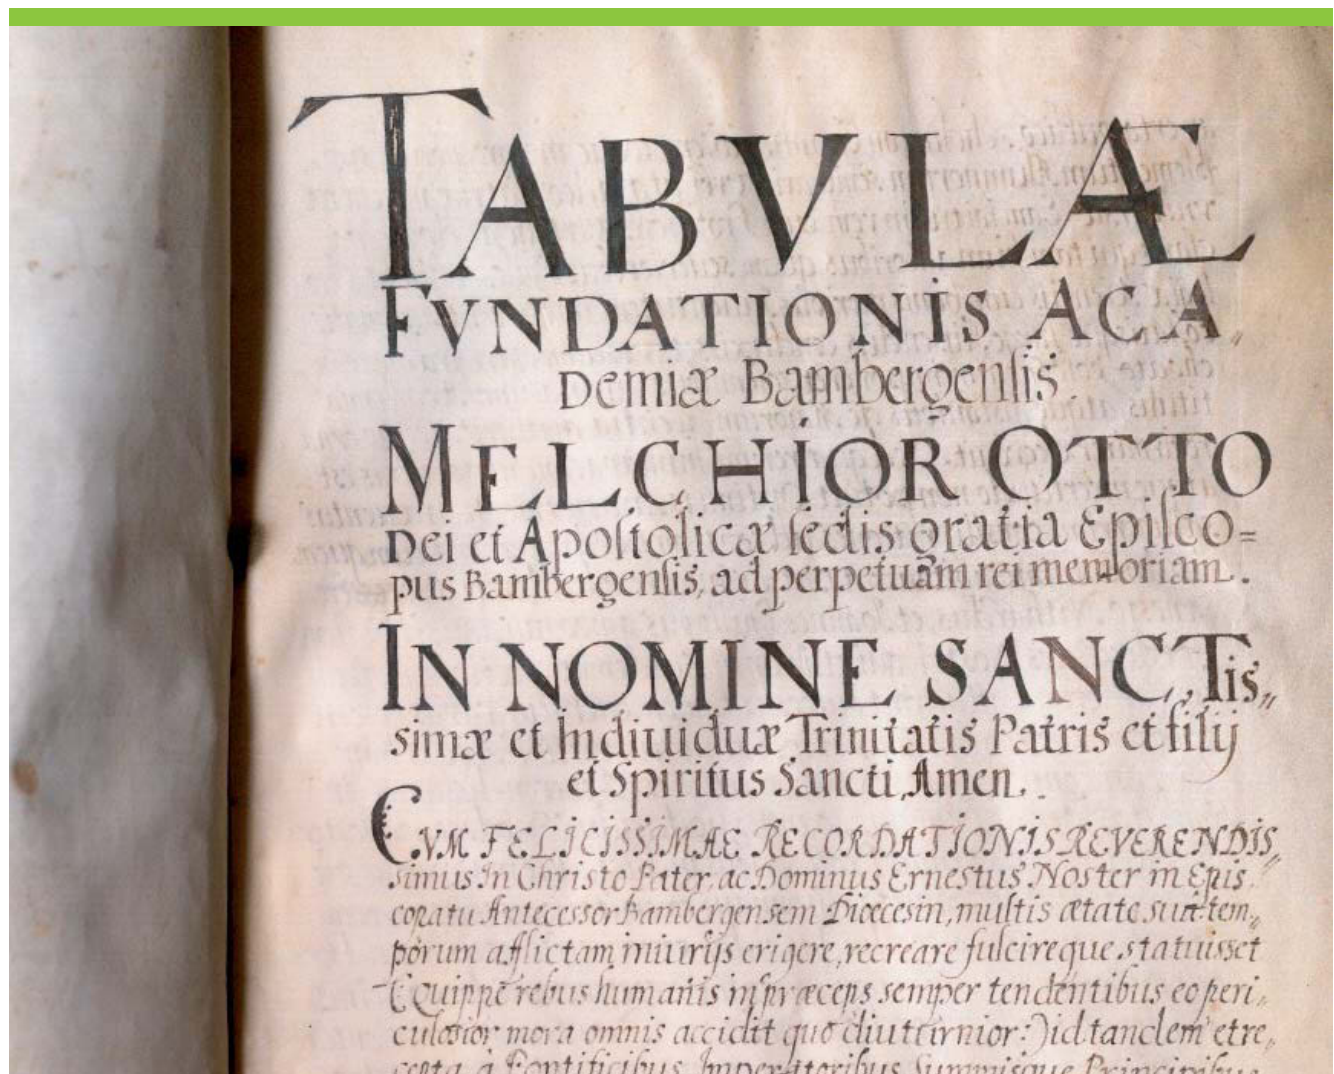 TABVLÆ
FVNDATIONIS ACA
Demiæ Bambergensis.
MELCHIOR OTTO
Dei et Apostolicæ sedis gratia Episco=
pus Bambergensis, ad perpetuam rei memoriam.
IN NOMINE SANCTis„
simæ et Indiuiduæ Trinitatis Patris et filij
et Spiritus Sancti, Amen.
CVM FELICISSIMAE RECORDATIONIS REVERENDIS„
simus In Christo Pater, ac Dominus Ernestus Noster in Epis
copatu Antecessor Bambergensem Diœcesin, multis ætate sua tem„
porum afflictam iniurijs erigere, recreare fulcireque statuisset
(Quippe rebus humanis in præceps semper tendentibus eo peri„
culosior mora omnis accidit quo diutturnior:) id tandem et re„
cepta à Pontificibus Imperatoribus Summisque Principibus